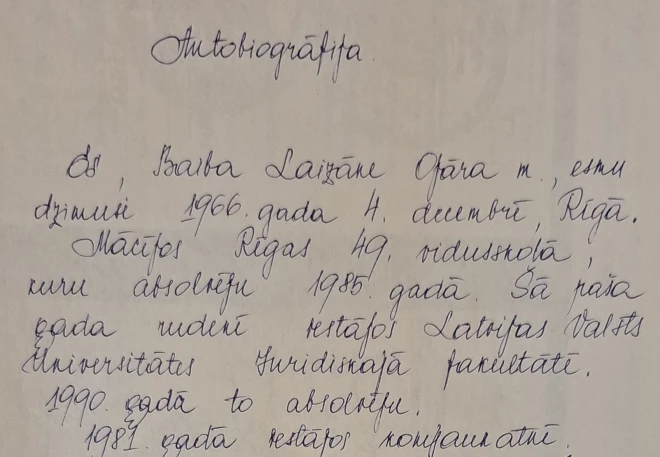 Autobiogrāfija.
Es, Baiba Laizāne Ojāra m., esmu
dzimusi 1966. gada 4. decembrī, Rīgā.
Mācījos Rīgas 49. vidusskolā,
kuru absolvēju 1985. gadā. Šā paša
gada rudenī iestājos Latvijas Valsts
Universitātes Juridiskajā fakultātē.
1990. gadā to absolvēju.
1981. gadā iestājos komjaunatnē.